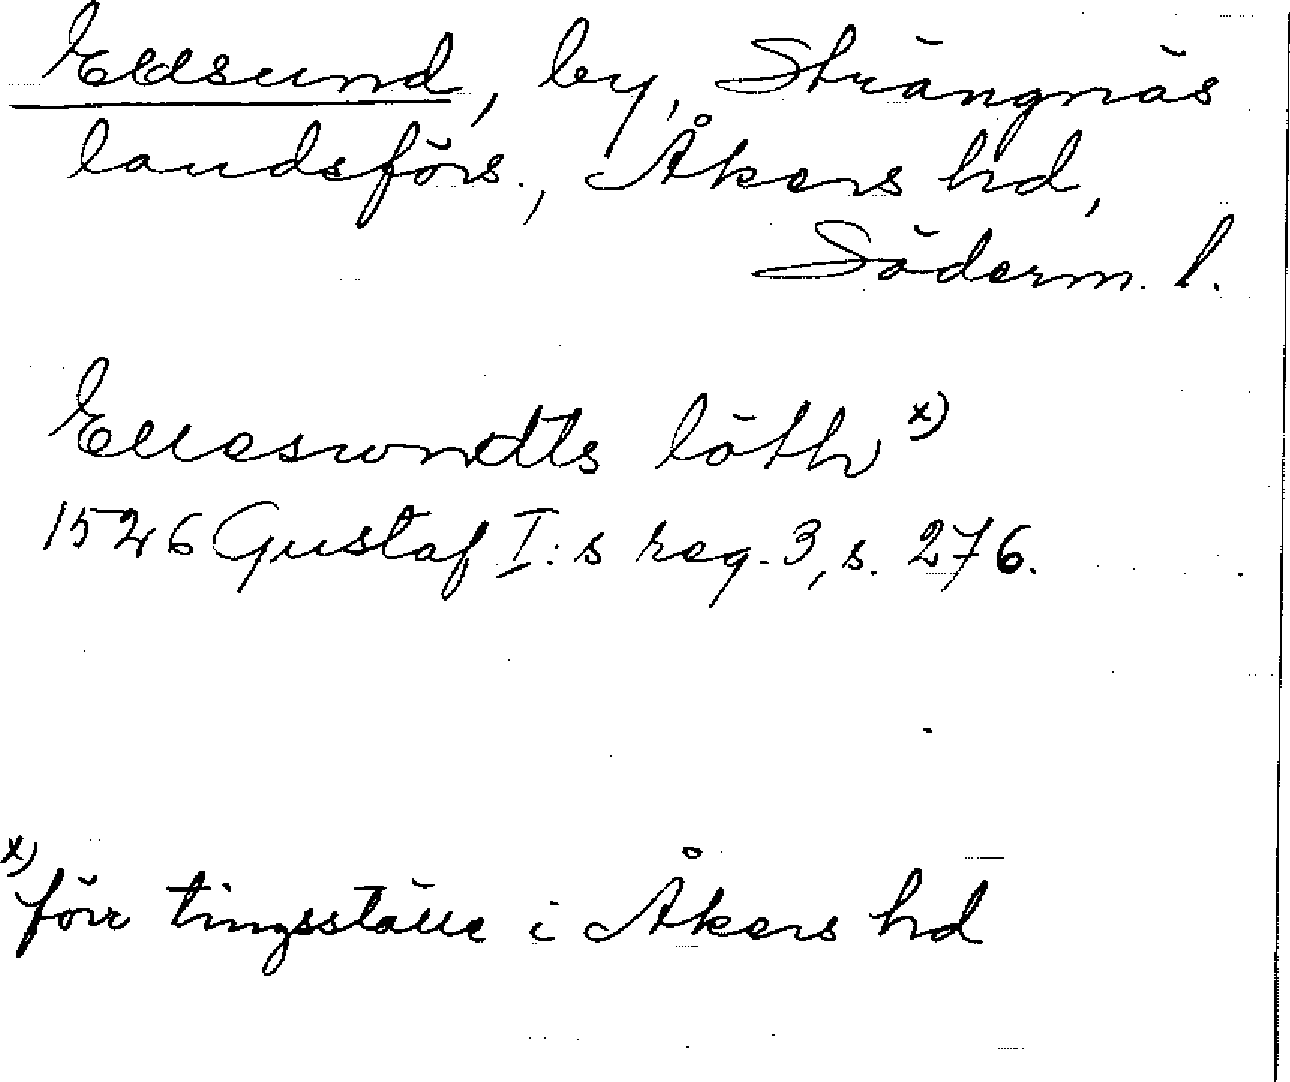 Eldsund, by, Strängnäs
landsförs., Åkers hd,
Söderm. l.
Elleswndts löth x)
1526 Gustaf I:s reg. 3, s. 276.
x) förr tingsställe i Åkers hd